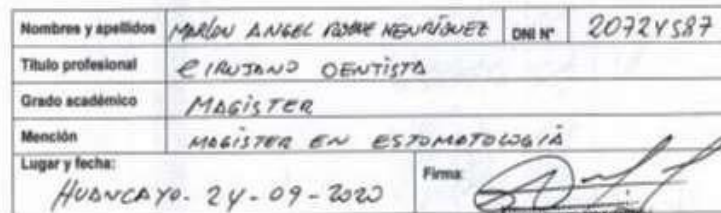 Nombres y apellidos MARLON ANGEL ROME HENRÍQUEZ DNI N° 20724587
Título profesional CIRUJANO DENTISTA
Grado académico MAGISTER
Mención MAGISTER EN ESTOMATOLOGIA
Lugar y fecha: Firma:
HUANCAYO - 24 - 09 - 2020